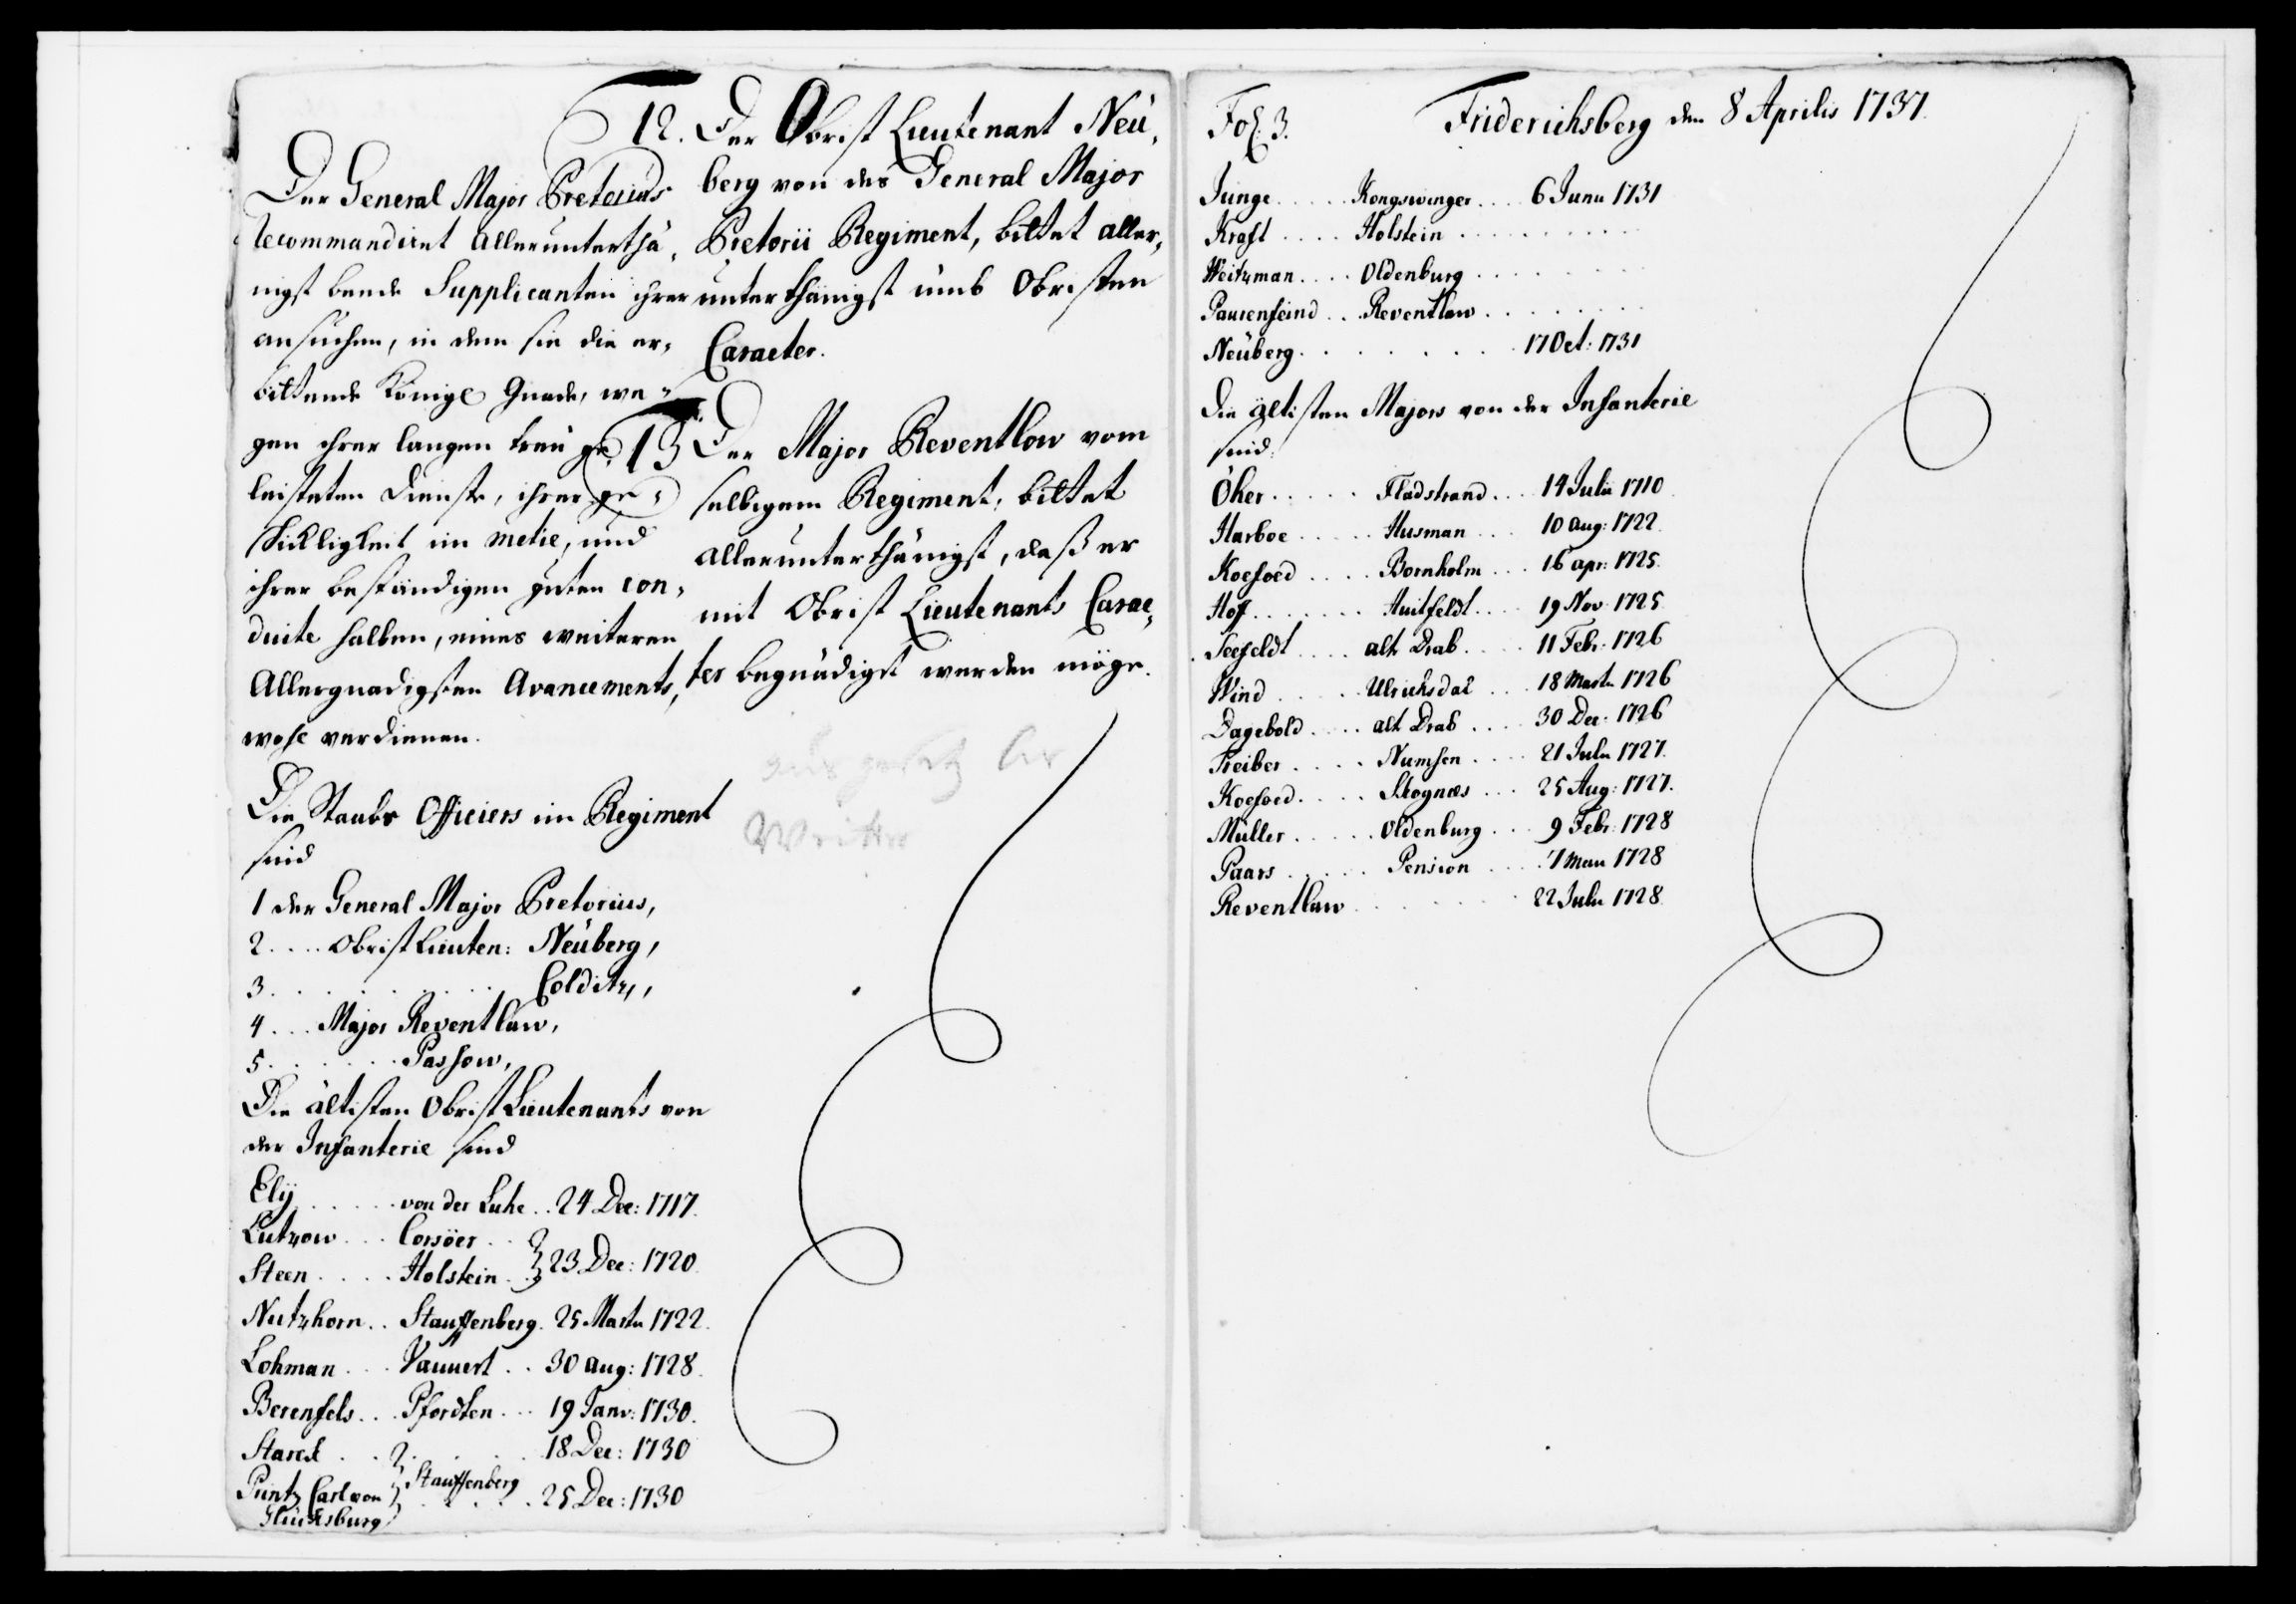 12.
Der General Major Pretorius
recommandiret allerunterthä,
nigst beede Supplicanten ihrer
ansuchen, in dem sie die er,
bittende Königl Gnade, we,
gen ihrer langen treu ge,
leisteten Dienste, ihrer ge,
schickligkeit im metie, und
ihrer beständigen guten con,
duite halben, eines weiteren
Allergnädigsten Avancements,
wohl verdienen.
Die Staabs Officiers im Regiment
sind
1 der General Major Pretorius,
2 .... Obrist Lieuten: Neüberg,
3 . . . . . . . Colditz,
4 ... Major Reventlaw,
5 . . . . . Passow,
Die ältisten Obrist Lieutenants von
der Infanterie sind
Elÿ . . . . . von der Luhe .. 24 Dec: 1717.
Lutzow ... Corsöer . . } 23 Dec: 1720
Steen . . . . Holstein . . }
Nutzhorn .. Stauffenberg. 25 Martii 1722.
Lohman ... Vauuert .. 30 aug: 1728.
Berenfels ... Pfordten ... 19 Janv: 1730.
Starck . . } . . . . 18 Dec: 1730
Printz Carl von } Stauffenberg . . . 25 Dec: 1730
Glücksburg
Der Obrist Lieutenant Neü,
berg von des General Major
Pretorii Regiment, bittet aller,
unterthänigst umb Obristen
Caracter.
13
Der Major Reventlow vom
selbigem Regiment, bittet
allerunterthänigst, daß er
mit Obrist Lieutenants Carac,
ter begnädigt werden möge.
Fol: 3.
Friderichsberg den 8 Aprilis 1737.
Junge ..... Kongswinger .... 6 Junii 1731
Kraft .... Holstein . . . . . . . . .
Weitzman .... Oldenburg . . . . . . . .
Paurenfeind ... Reventlaw . . . . . . .
Neüberg . . . . . . . 17 Oct: 1731
Die ältisten Majors von der Infanterie
sind:
Öker ..... Fladstrand ... 14 Julii 1710
Harboe ..... Husman ... 10 aug: 1722.
Koefoed .... Bornholm ... 16 apr: 1725.
Hof ....... Huitfeldt .... 19 Nov: 1725
Seefeldt .... alt Drab .... 11 Febr: 1726
Wind ..... Ulrichsdal ... 18 Martii 1726
Dagebold .... alt Drab .... 30 Dec: 1726
Treiber .... Numsen .... 21 Julii 1727.
Koefoed .... Skognæs ... 25 Aug: 1727.
Müller ..... Oldenburg ... 9 Febr: 1728
Paars ..... Pension .... 7 Maii 1728
Reventlaw . . . . . . . 22 Julii 1728.